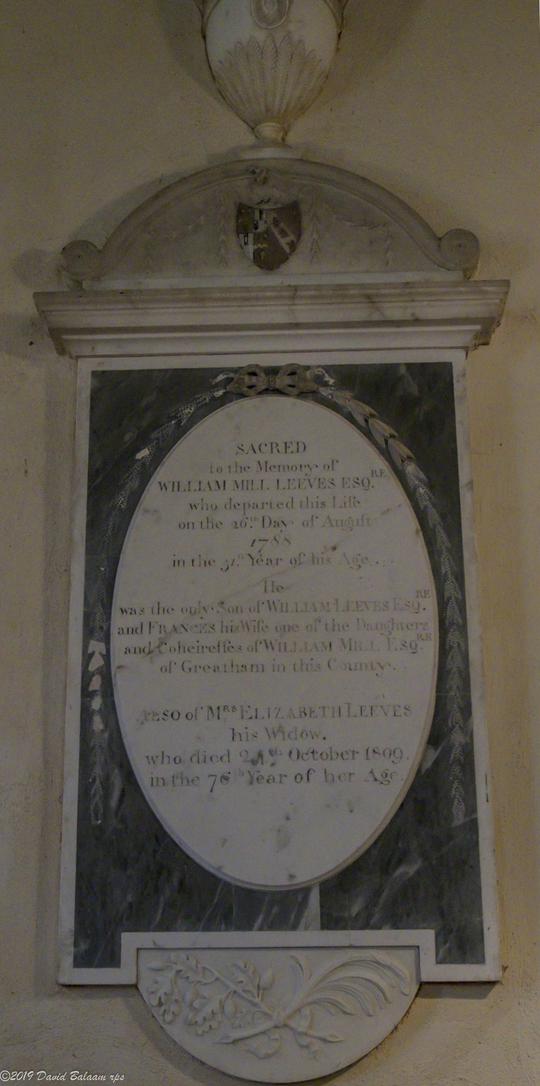 SACRED
to the Memory of
WILLIAM MILL LEEVES ESQ.RE
who departed this Life
on the 26th Day of August
1788
in the Year of his Age
He
was the only Son of WILLIAM LEEVES ESQ.RE
and FRANCES his Wife one of the Daughters
and Coheiresses of WILLIAM MILL ESQ.RE
of Greatham in this County
ALSO of MRS ELIZABETH LEEVES
his Widow.
who died October 1809.
in the 76th Year of her Age.
©2019 David Balaam rps